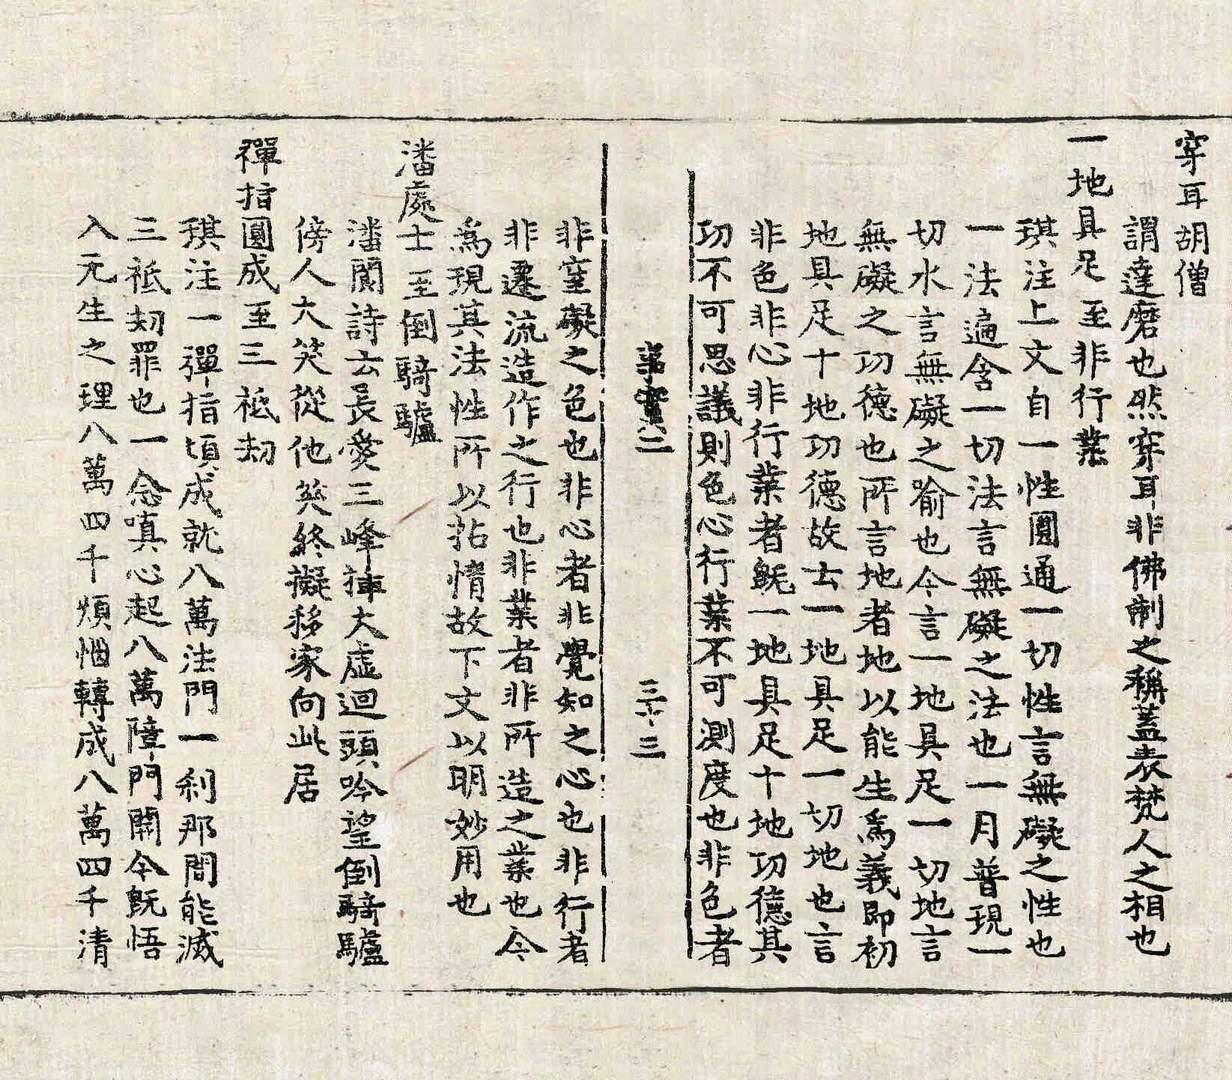 穿耳胡僧
謂達磨也然穿耳非佛制之稱蓋表梵人之相也
一地具足至非行業
琪注上文自一性圓通一切性言無礙之性也
一法遍含一切法言無礙之法也一月普現一
切水言無礙之喻也今言一地具足一切地言
無礙之功德也所言地者地以能生爲義即初
地具足十地功德故云一地具足一切地也言
非色非心非行業者既一地具足十地功德其
功不可思議則色心行業不可測度也非色者
事實二
三十三
非窒礙之色也非心者非覺知之心也非行者
非遷流造作之行也非業者非所造之業也今
爲現其法性所以拈情故下文以明妙用也
潘處士至倒騎驢
潘閬詩云長愛三峰揷大虛迴頭吟望倒騎驢
傍人大笑從他笑終擬移家向此居
彈指圓成至三祇劫
琪注一彈指頃成就八萬法門一刹那間能滅
三祇劫罪也一念嗔心起八萬障門開今既悟
入无生之理八萬四千煩惱轉成八萬四千清